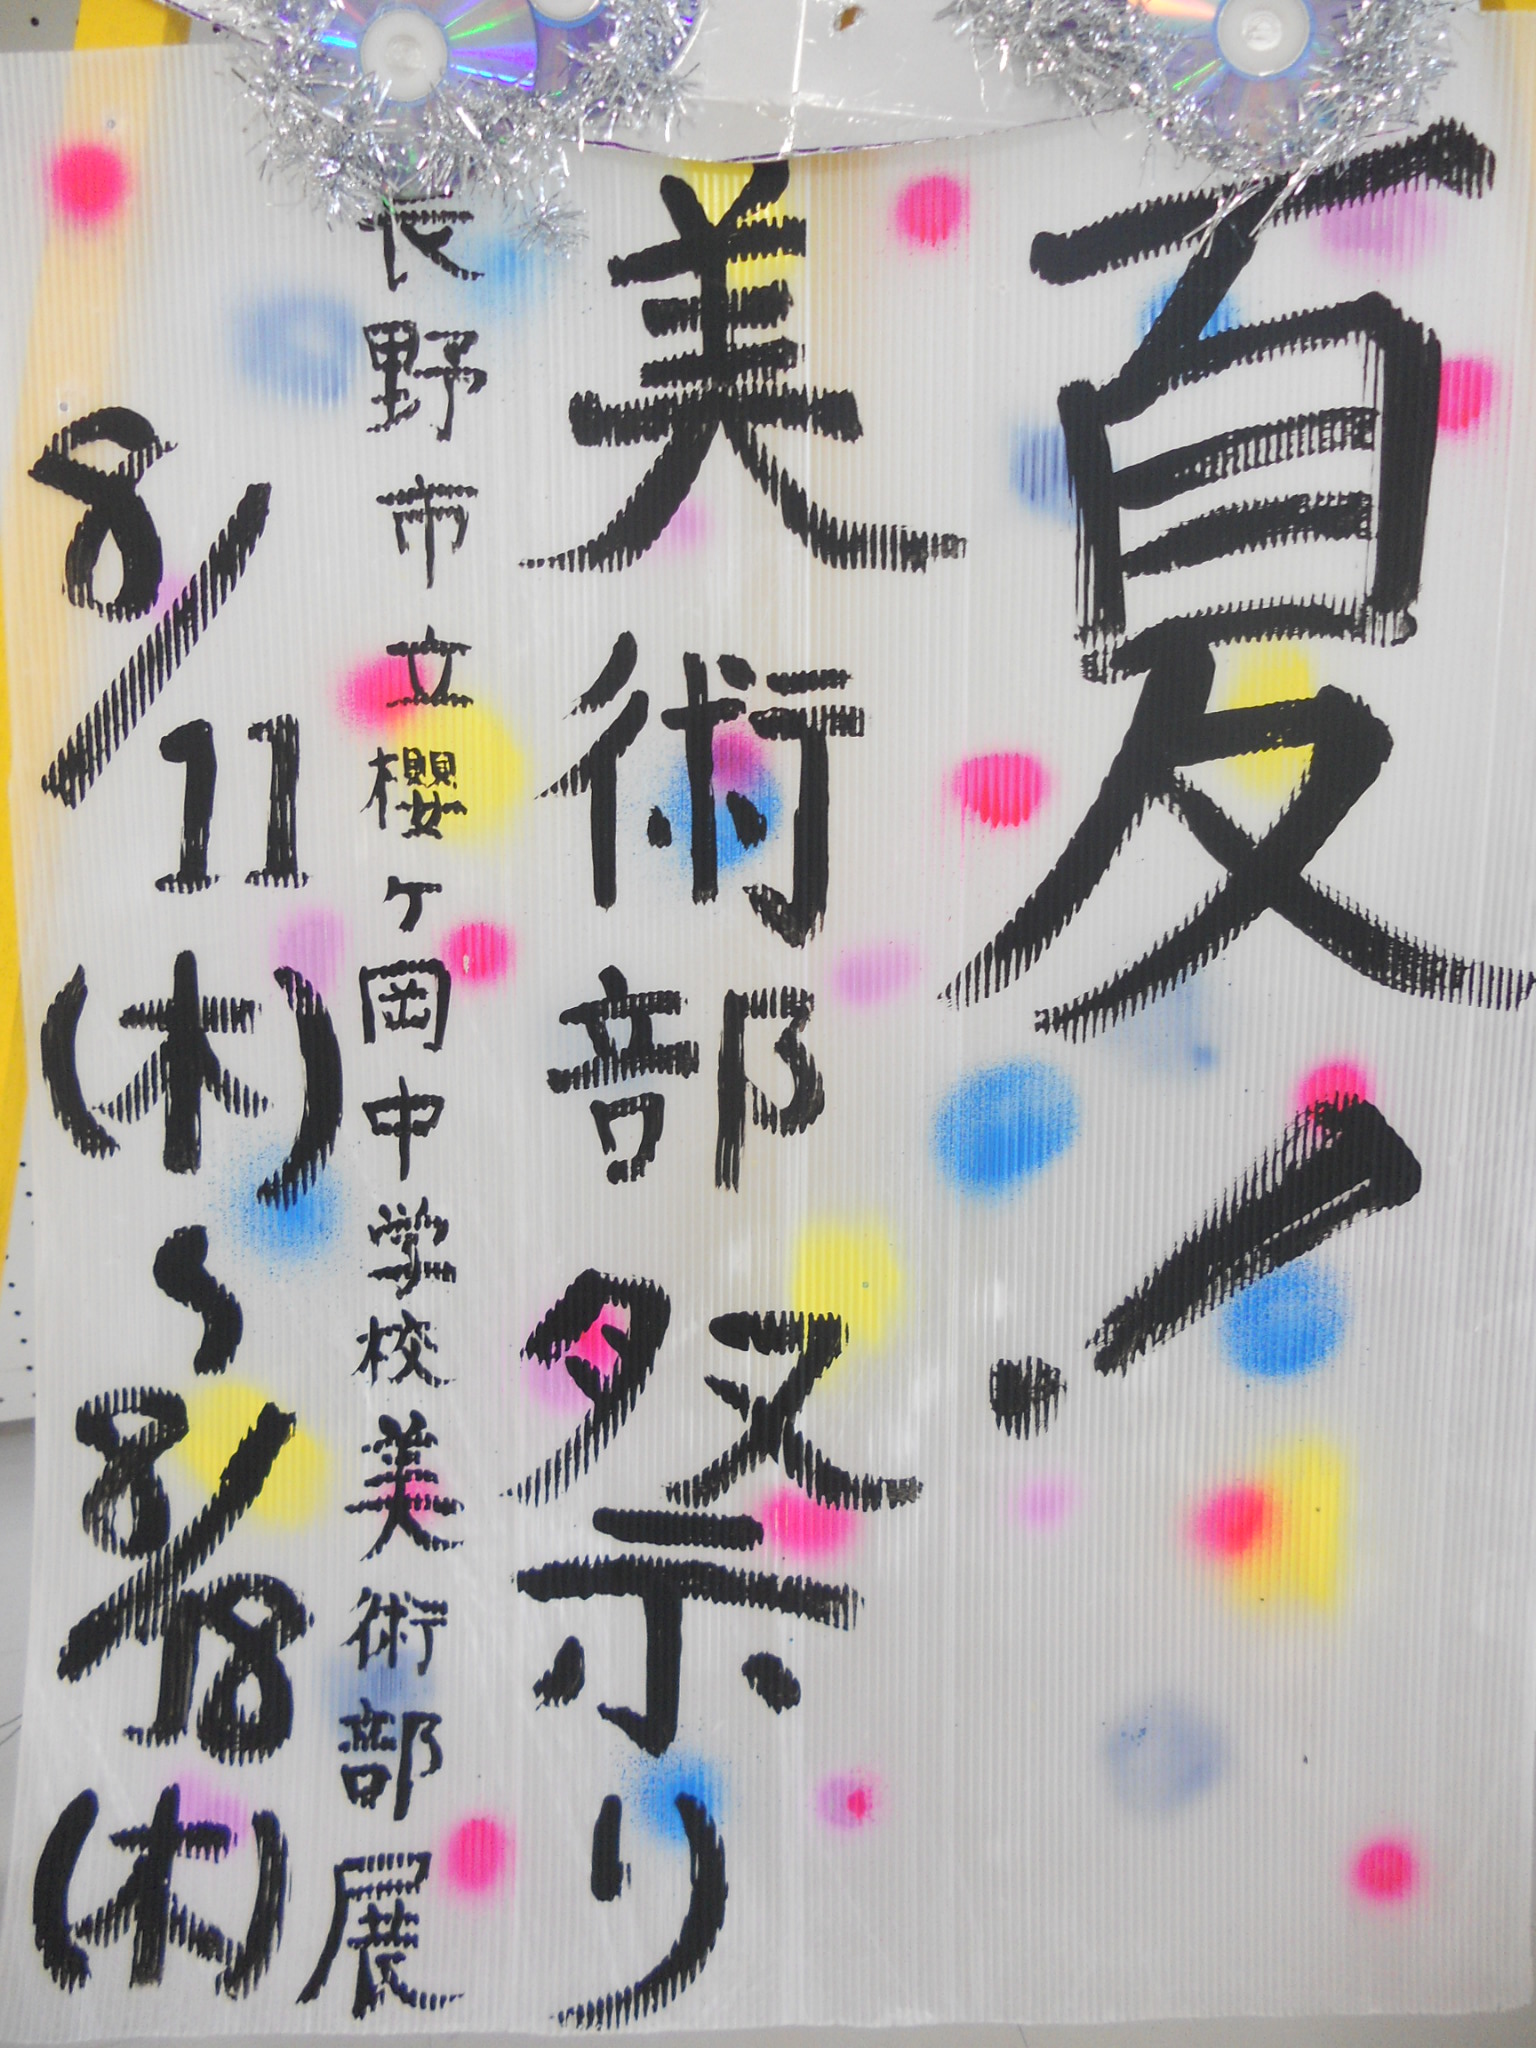 夏!
美術部祭り
長野市立櫻ヶ岡中学校美術部展
8/11(木)~8/18(木)